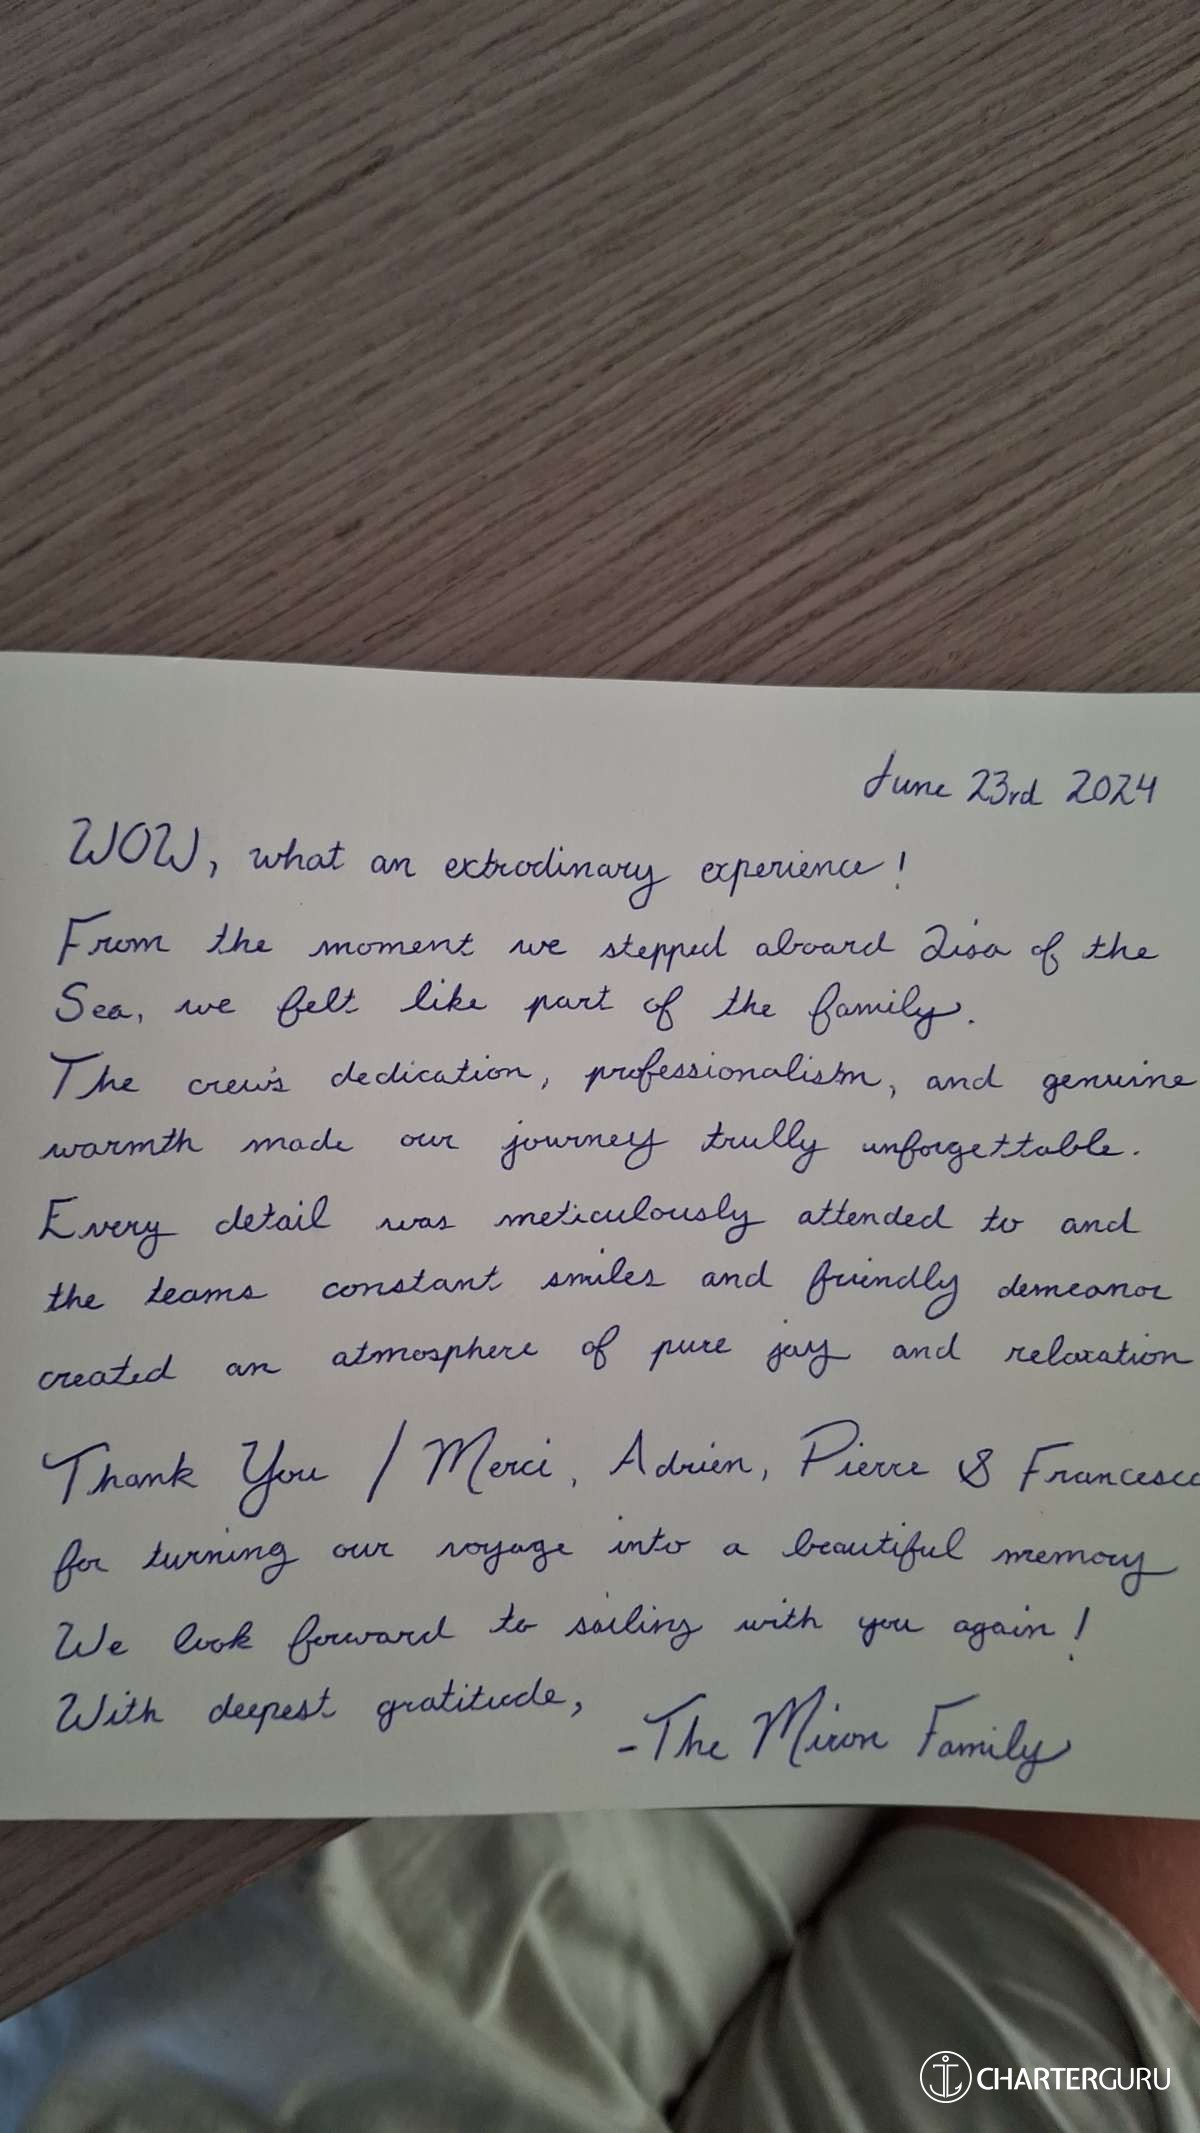 June 23rd 2024
WOW, what an extrodinary experience!
From the moment we stepped aboard Lisa of the
Sea, we felt like part of the family.
The crew's dedication, professionalism, and genuine
warmth made our journey trully unforgettable.
Every detail was meticulously attended to and
the teams constant smiles and friendly demeanor
created an atmosphere of pure joy and relaxation
Thank You / Merci, Adrien, Pierre & Francesco
for turning our voyage into a beautiful memory
We look forward to sailing with you again!
With deepest gratitude,
-The Miron Family
CHARTERGURU